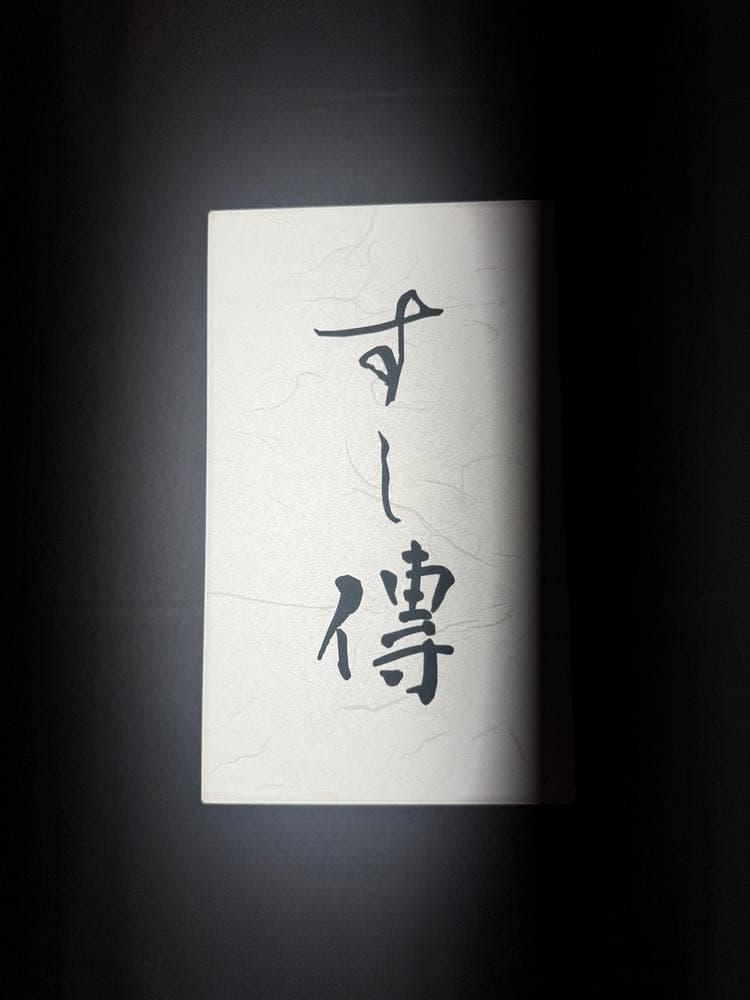 すし傳